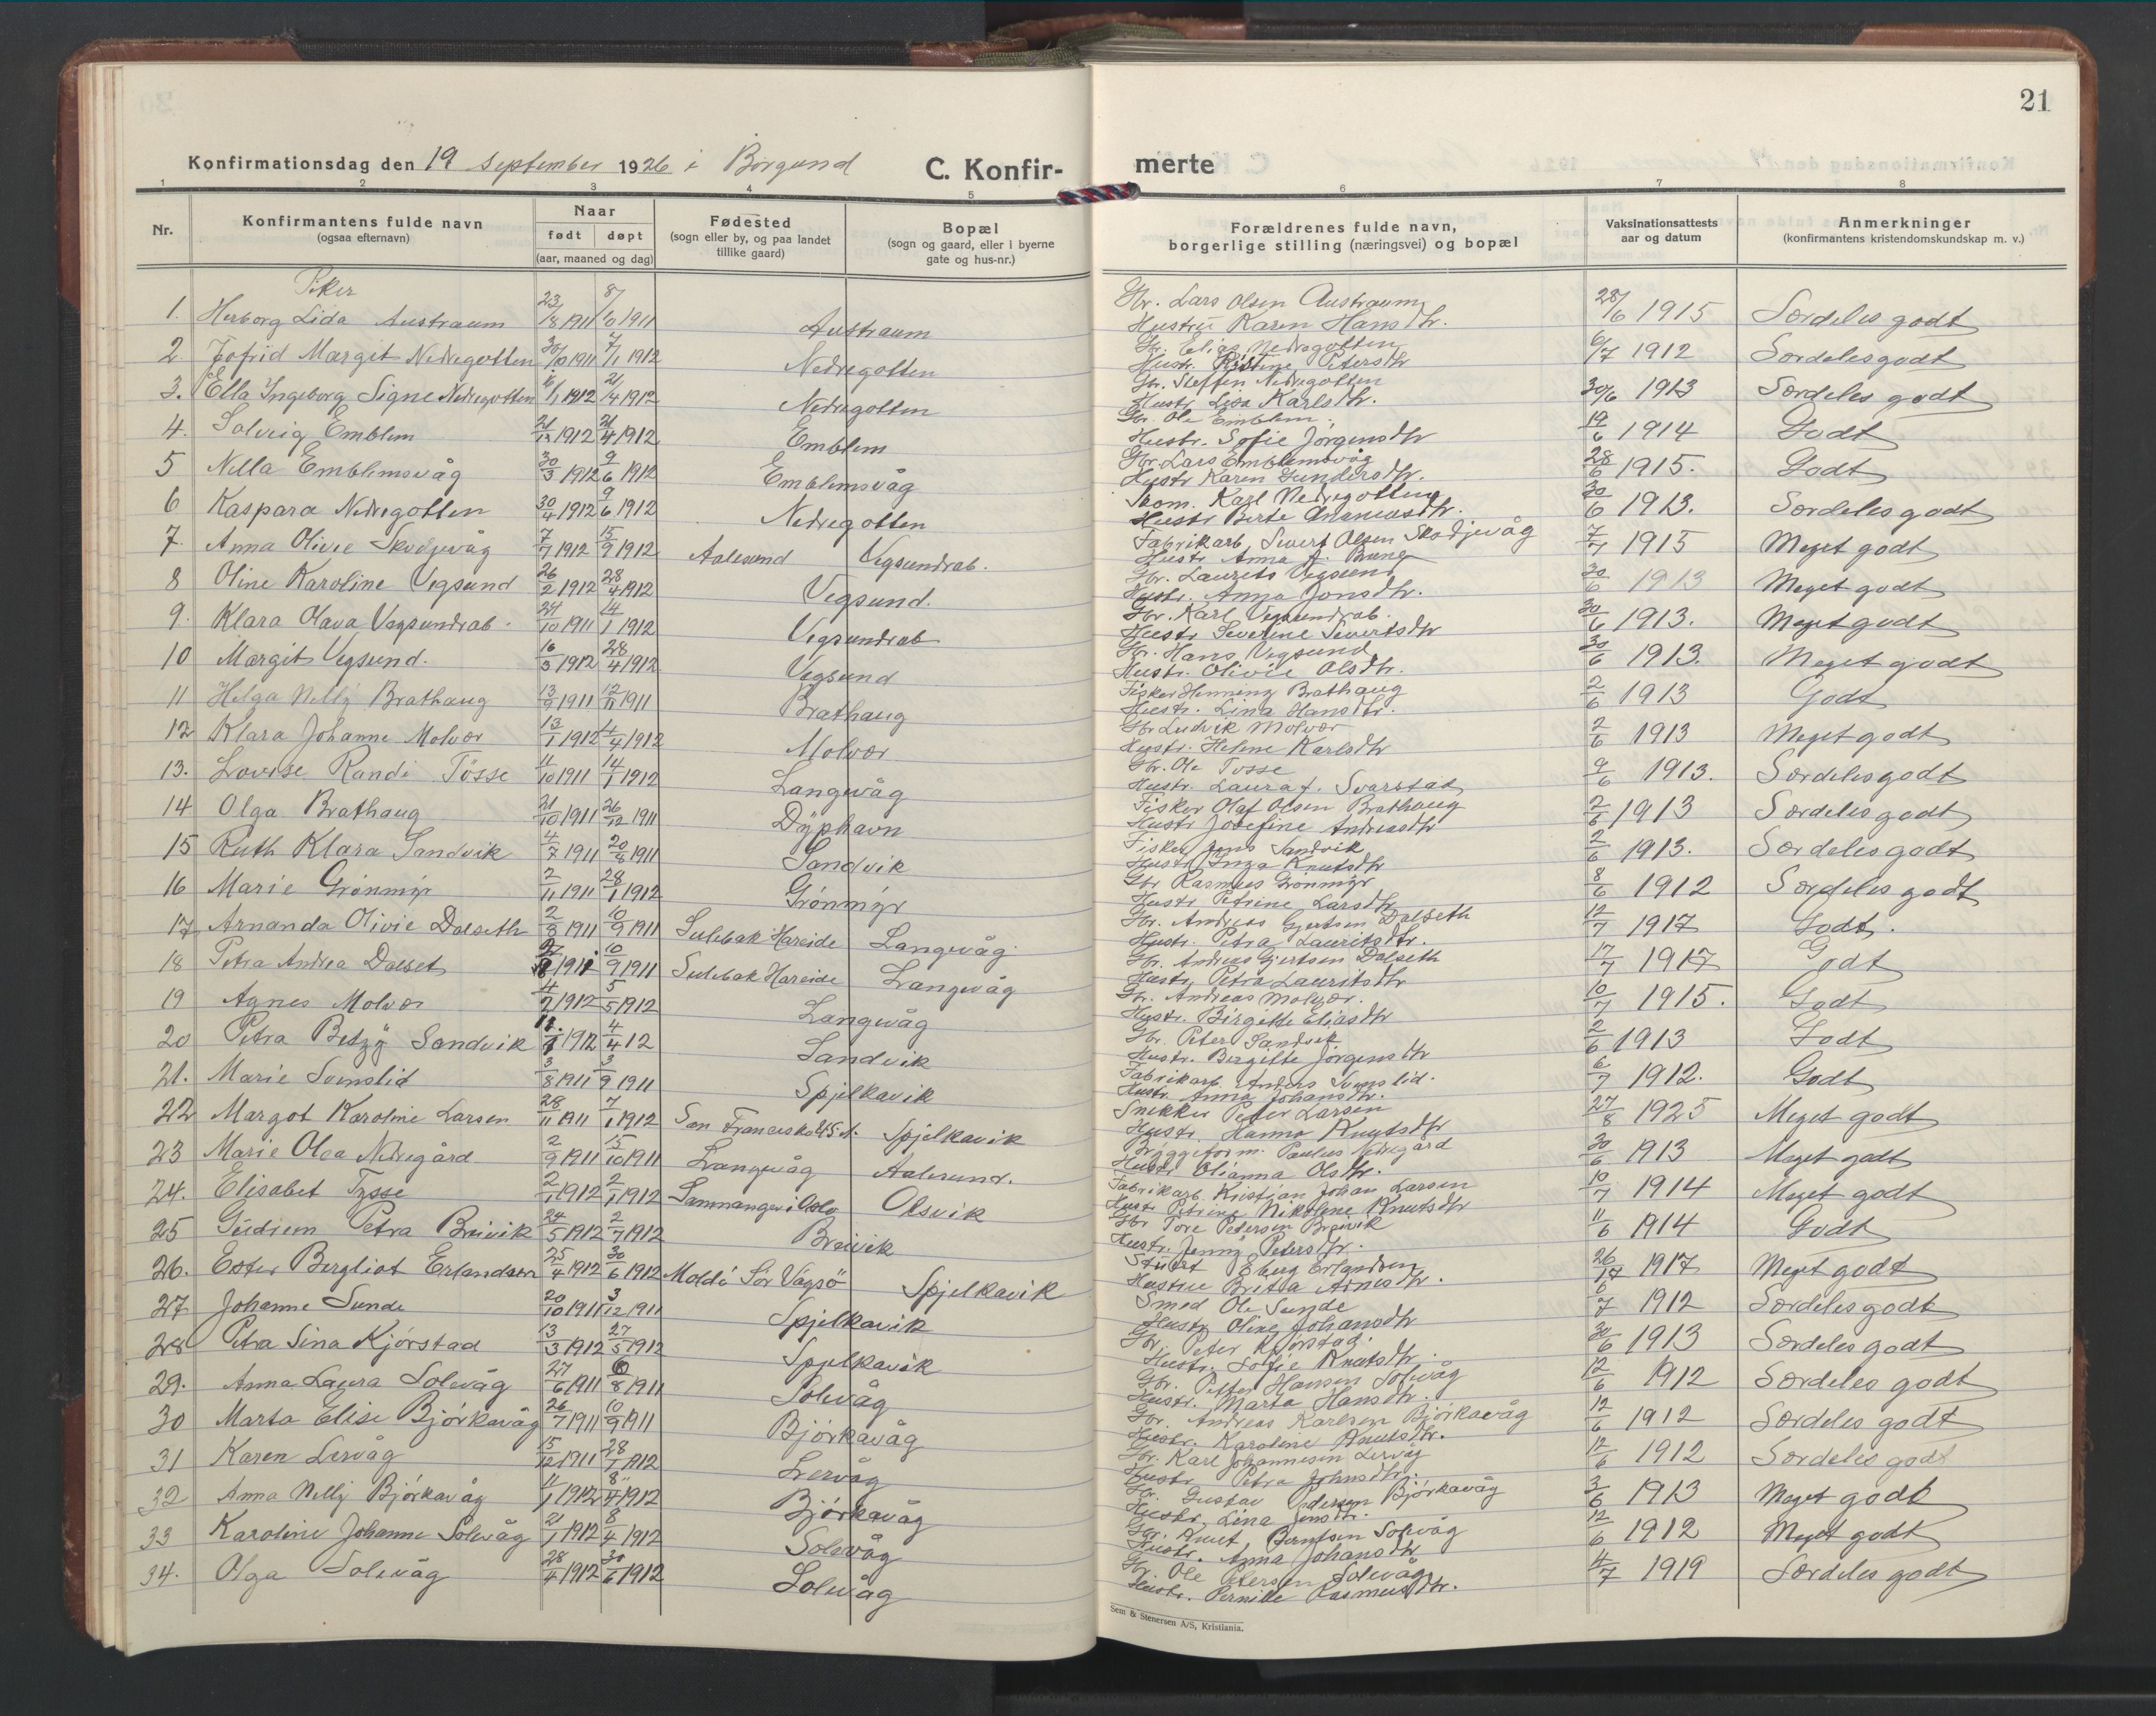 21
Konfirmationsdag den 19 september 1926 i Borgund C. Konfir- merte
1 2 3 4 5 6 7 8
Nr. Konfirmantens fulde navn (ogsaa efternavn) Naar født døpt (aar, maaned og dag) Fødested (sogn eller by, og paa landet tillike gaard) Bopæl (sogn og gaard, eller i byerne gate og hus-nr.) Forældrenes fulde navn, borgerlige stilling (næringsvei) og bopæl Vaksinationsattests aar og datum Anmerkninger (konfirmantens kristendomskundskap m. v.)
Piker
1. Herborg Lida Austraum 23/8 1911 8/10 1911 Austraum Gbr. Lars Olsen Austraum Hustru Karen Hansdtr. 28/6 1915 Særdeles godt
2 Jofrid Margit Nedregotten 30/10 1911 7/1 1912 Nedregotten Gbr. Elias Nedregotten Hustr. Kristine Petersdtr 6/7 1912 Særdeles godt
3. Ella Ingeborg Signe Nedregotten 6/1 1912 21/4 1912 Nedregotten Gbr. Steffen Nedregotten Hustr. Lisa Karlsdtr. 30/6 1913 Særdeles godt
4. Solveig Emblem 1912 21/4 1912 Emblem Gbr. Ole Emblem, Hustr. Sofie Jørgensdtr 19/6 1914 Godt
5 Nella Emblemsvåg 30/3 1912 9/6 1912 Emblemsvåg Gbr. Lars Emblemsvåg Hustr Karen Gundersdtr. 28/6 1915. Godt
6 Kaspara Nedregotten 30/4 1912 9/6 1912 Nedregotten Skom. Karl Nedregotten Hustr Berte Ananiasdtr. 30/6 1913. Særdeles godt
7. Anna Olivie Skodjevåg 7/7 1912 15/9 1912 Aalesund Vegsundrab. Fabrikarb. Sivert Olsen Skodjevåg Hustr Anna A. 7/7 1915 Meget godt
8 Oline Karoline Vegsund 26/2 1912 28/4 1912 Vegsund. Gbr. Laurits Vegsund Hustr. Anna Jonsdtr. 30/6 1913 Meget godt
9. Klara Olava Vegsundrab. 24/10 1911 14/1 1912 Vegsundrab Gbr. Karl Vegsundrab. Hustr Severine Sivertsdtr 30/6 1913. Meget godt
10 Margit Vegsund. 16/3 1912 28/4 1912 Vegsund Gbr. Hans Vegsund Hustr. Olivie Olsdtr. 30/6 1913. Meget godt
11 Helga Nelly Brathaug 13/9 1911 12/11 1911 Brathaug Fisker Henning Brathaug Hustr. Lina Hansdtr. 2/6 1913 Godt
12 Klara Johanne Molvær 13/1 1912 4/4 1912 Molvær Gbr Ludvik Molvær Hustr. Helene Karlsdtr 2/6 1913 Meget godt
13. Lovise Randi Tösse 11/10 1911 14/1 1912 Langevåg Gbr. Ole Tösse Hustr. Laura f. Svarstat 9/6 1913. Særdeles godt
14 Olga Brathaug 21/10 1911 26/12 1911 Dyphavn Fisker Olaf Olsen Brathaug Hustr Josefine Andreasdtr 2/6 1913 Særdeles godt
15 Ruth Klara Sandvik 4/7 1911 20/8 1911 Sandvik Fisker Jens Sandvik Hustr Inga Knutsdtr 2/6 1913. Særdeles godt
16 Marie Grönmyr 2/11 1911 28/1 1912 Grönmyr Gbr Rasmus Grönmyr Hustr Petrine Larsdtr 8/6 1912 Særdeles godt
17 Arnanda Olivie Dalseth 2/8 1911 10/9 1911 Sulebak Hareide Langevåg Gbr. Andreas Gjertsen Dalseth Hustr. Petra Lauritsdtr. 12/7 1917 Godt.
18 Petra Andrea Dalset 1911 10/9 1911 Sulebak Hareide Langevåg Gbr. Andreas Gjertsen Dalseth Hustr. Petra Lauritsdtr 17/7 1917 Godt
19 Agnes Molvær 4/2 1912 5/5 1912 Langevåg Gbr. Andreas Molvær. Hustr. Birgitte Eliasdtr 10/7 1915. Godt
20 Petra Betzy Sandvik 1912 4/4 12 Sandvik Gbr. Peter Sandvik Hustr. Bergitte Jörgensdtr 2/6 1913 Godt
21. Marie Svenslid 3/8 1911 3/9 1911 Spjelkavik Fabrikarb. Anders Svenslid. Hustr. Anna Johansdtr. 6/7 1912. Godt
22 Margot Karoline Larsen 28/11 1911 7/1 1912 San Francisko U S A. Spjelkavik Snikker Peder Larsen Hustr. Hanna Knutsdtr 27/8 1925 Meget godt
23 Marie Olea Nedregård 2/9 1911 15/10 1911 Langevåg Aalesund. Bryggeform. Paulus Nedregård Hustr. Olianna Olsdtr. 30/6 1913 Meget godt
24. Elisabet Tysse 2/1 1912 2/1 1912 Samnanger i Oslo Olsvik Fabrikarb. Kristian Johan Larsen Hustr Petrine Nikoline Knutsdtr 10/7 1914 Meget godt
25 Gudrun Petra Breivik 24/5 1912 2/7 1912 Breivik Gbr Tore Petersen Breivik Hustr. Jenny Petersdtr. 11/6 1914 Godt
26. Ester Bergliot Erlandsen 25/4 1912 30/6 1912 Moldö Sör Vågsö Spjelkavik Stuert Eberg Erlandsen Hustru Brita Arnesdtr. 26/17 1917 Meget godt
27 Johanne Sunde 20/10 1911 3/12 1911 Spjelkavik Smed Ole Sunde Hustr. Oline Johansdtr 6/7 1912 Særdeles godt
28 Petra Sina Kjörstad 13/3 1912 27/5 1912 Spjelkavik Gbr. Peter Kjörstad. Hustr. Sofie Knutsdtr. 30/6 1913 Særdeles godt
29. Anna Laura Solevåg 27/6 1911 6/8 1911 Solevåg Gbr. Petter Hansen Solevåg Hustr. Marta Hansdtr. 12/6 1912 Særdeles godt
30 Marta Elise Björkavåg 26/7 1911 10/9 1911 Björkavåg Gbr. Andreas Karlsen Björkavåg Hustr. Karoline Knutsdtr. 12/6 1912 Særdeles godt
31 Karen Lervåg 15/12 1911 28/1 1912 Lervåg Gbr. Karl Johannesen Lervåg Hustr Petra Johnsdtr. 12/6 1912 Særdeles godt
32 Anna Nelly Björkavåg 11/1 1912 8/4 1912 Björkavåg Gbr. Gustav Pedersen Björkavåg Hustr. Lina Jensdtr. 3/6 1913 Meget godt
33 Karoline Johanne Solevåg 21/1 1912 8/4 1912 Solevåg Gbr. Knut Berntsen Solevåg Hustr. Anna Johansdtr 12/6 1912 Meget godt
34. Olga Solevåg 28/4 1912 30/6 1912 Solevåg Gbr. Ole Petersen Solevåg Hustr. Pernille Rasmusdtr. 4/7 1919 Særdeles godt
Sem & Stenersen A/S, Kristiania.